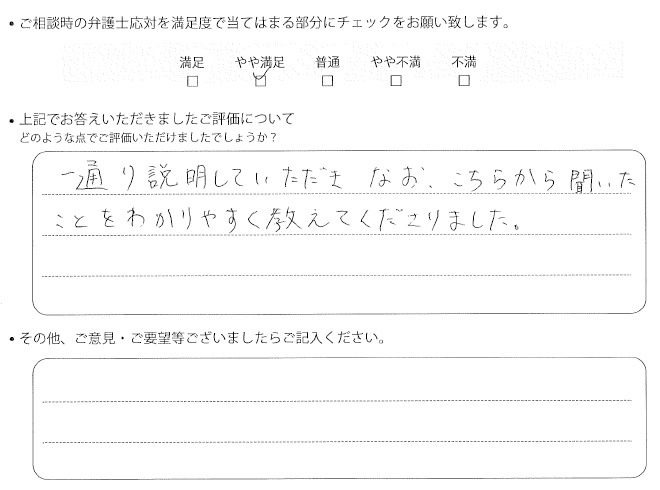 • ご相談時の弁護士応対を満足度で当てはまる部分にチェックをお願い致します。
満足 やや満足 普通 やや不満 不満
□ ☑ □ □ □
• 上記でお答えいただきましたご評価について
どのような点でご評価いただけましたでしょうか?
一通り説明していただき なお、こちらから聞いた
ことをわかりやすく教えてくださりました。
• その他、ご意見・ご要望等ございましたらご記入ください。